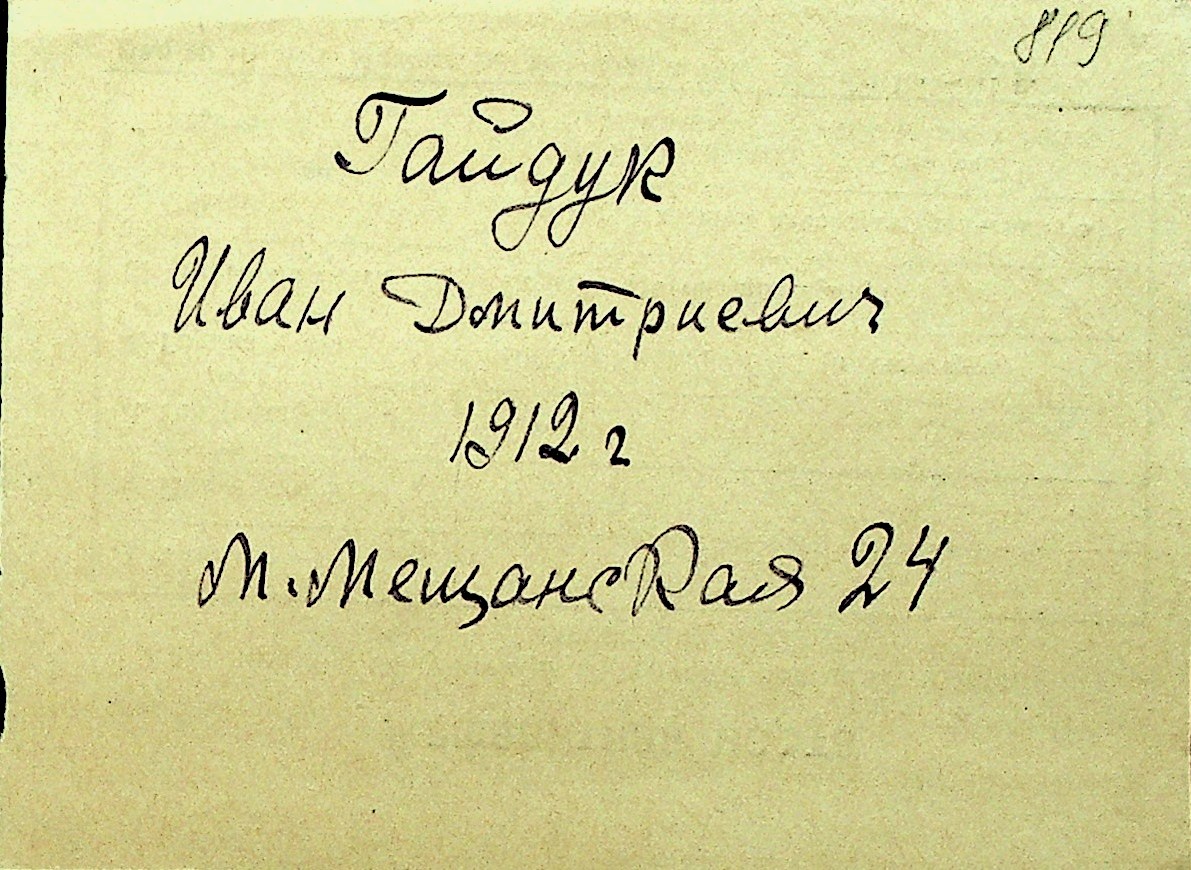 819
Гайдук
Иван Дмитриевич
1912 г
М. Мещанская 24